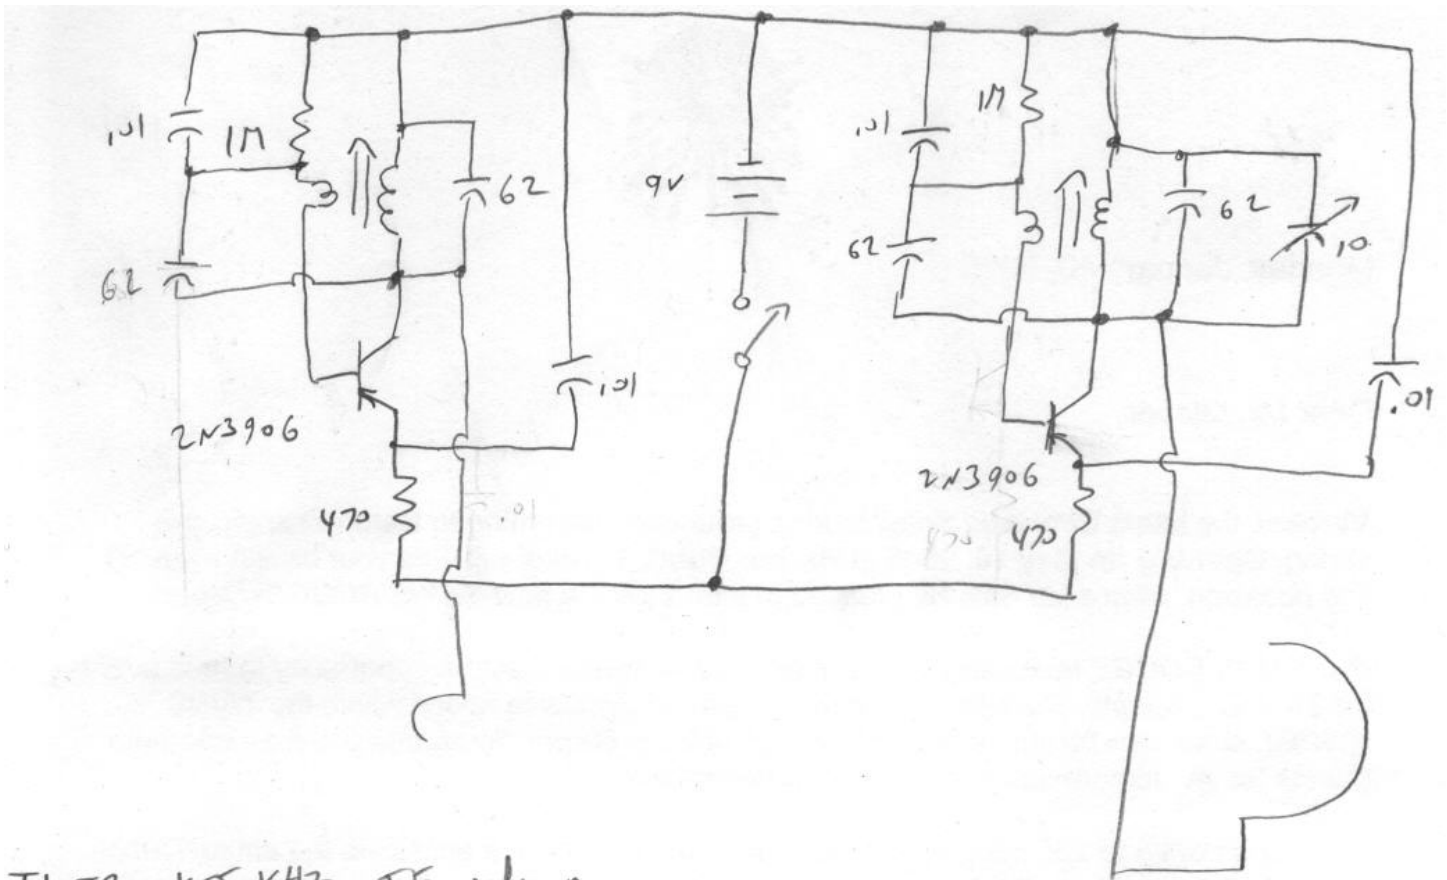 .01
1M
62
62
2N3906
470
.01
9V
.01
1M
62
62
10
.01
2N3906
470